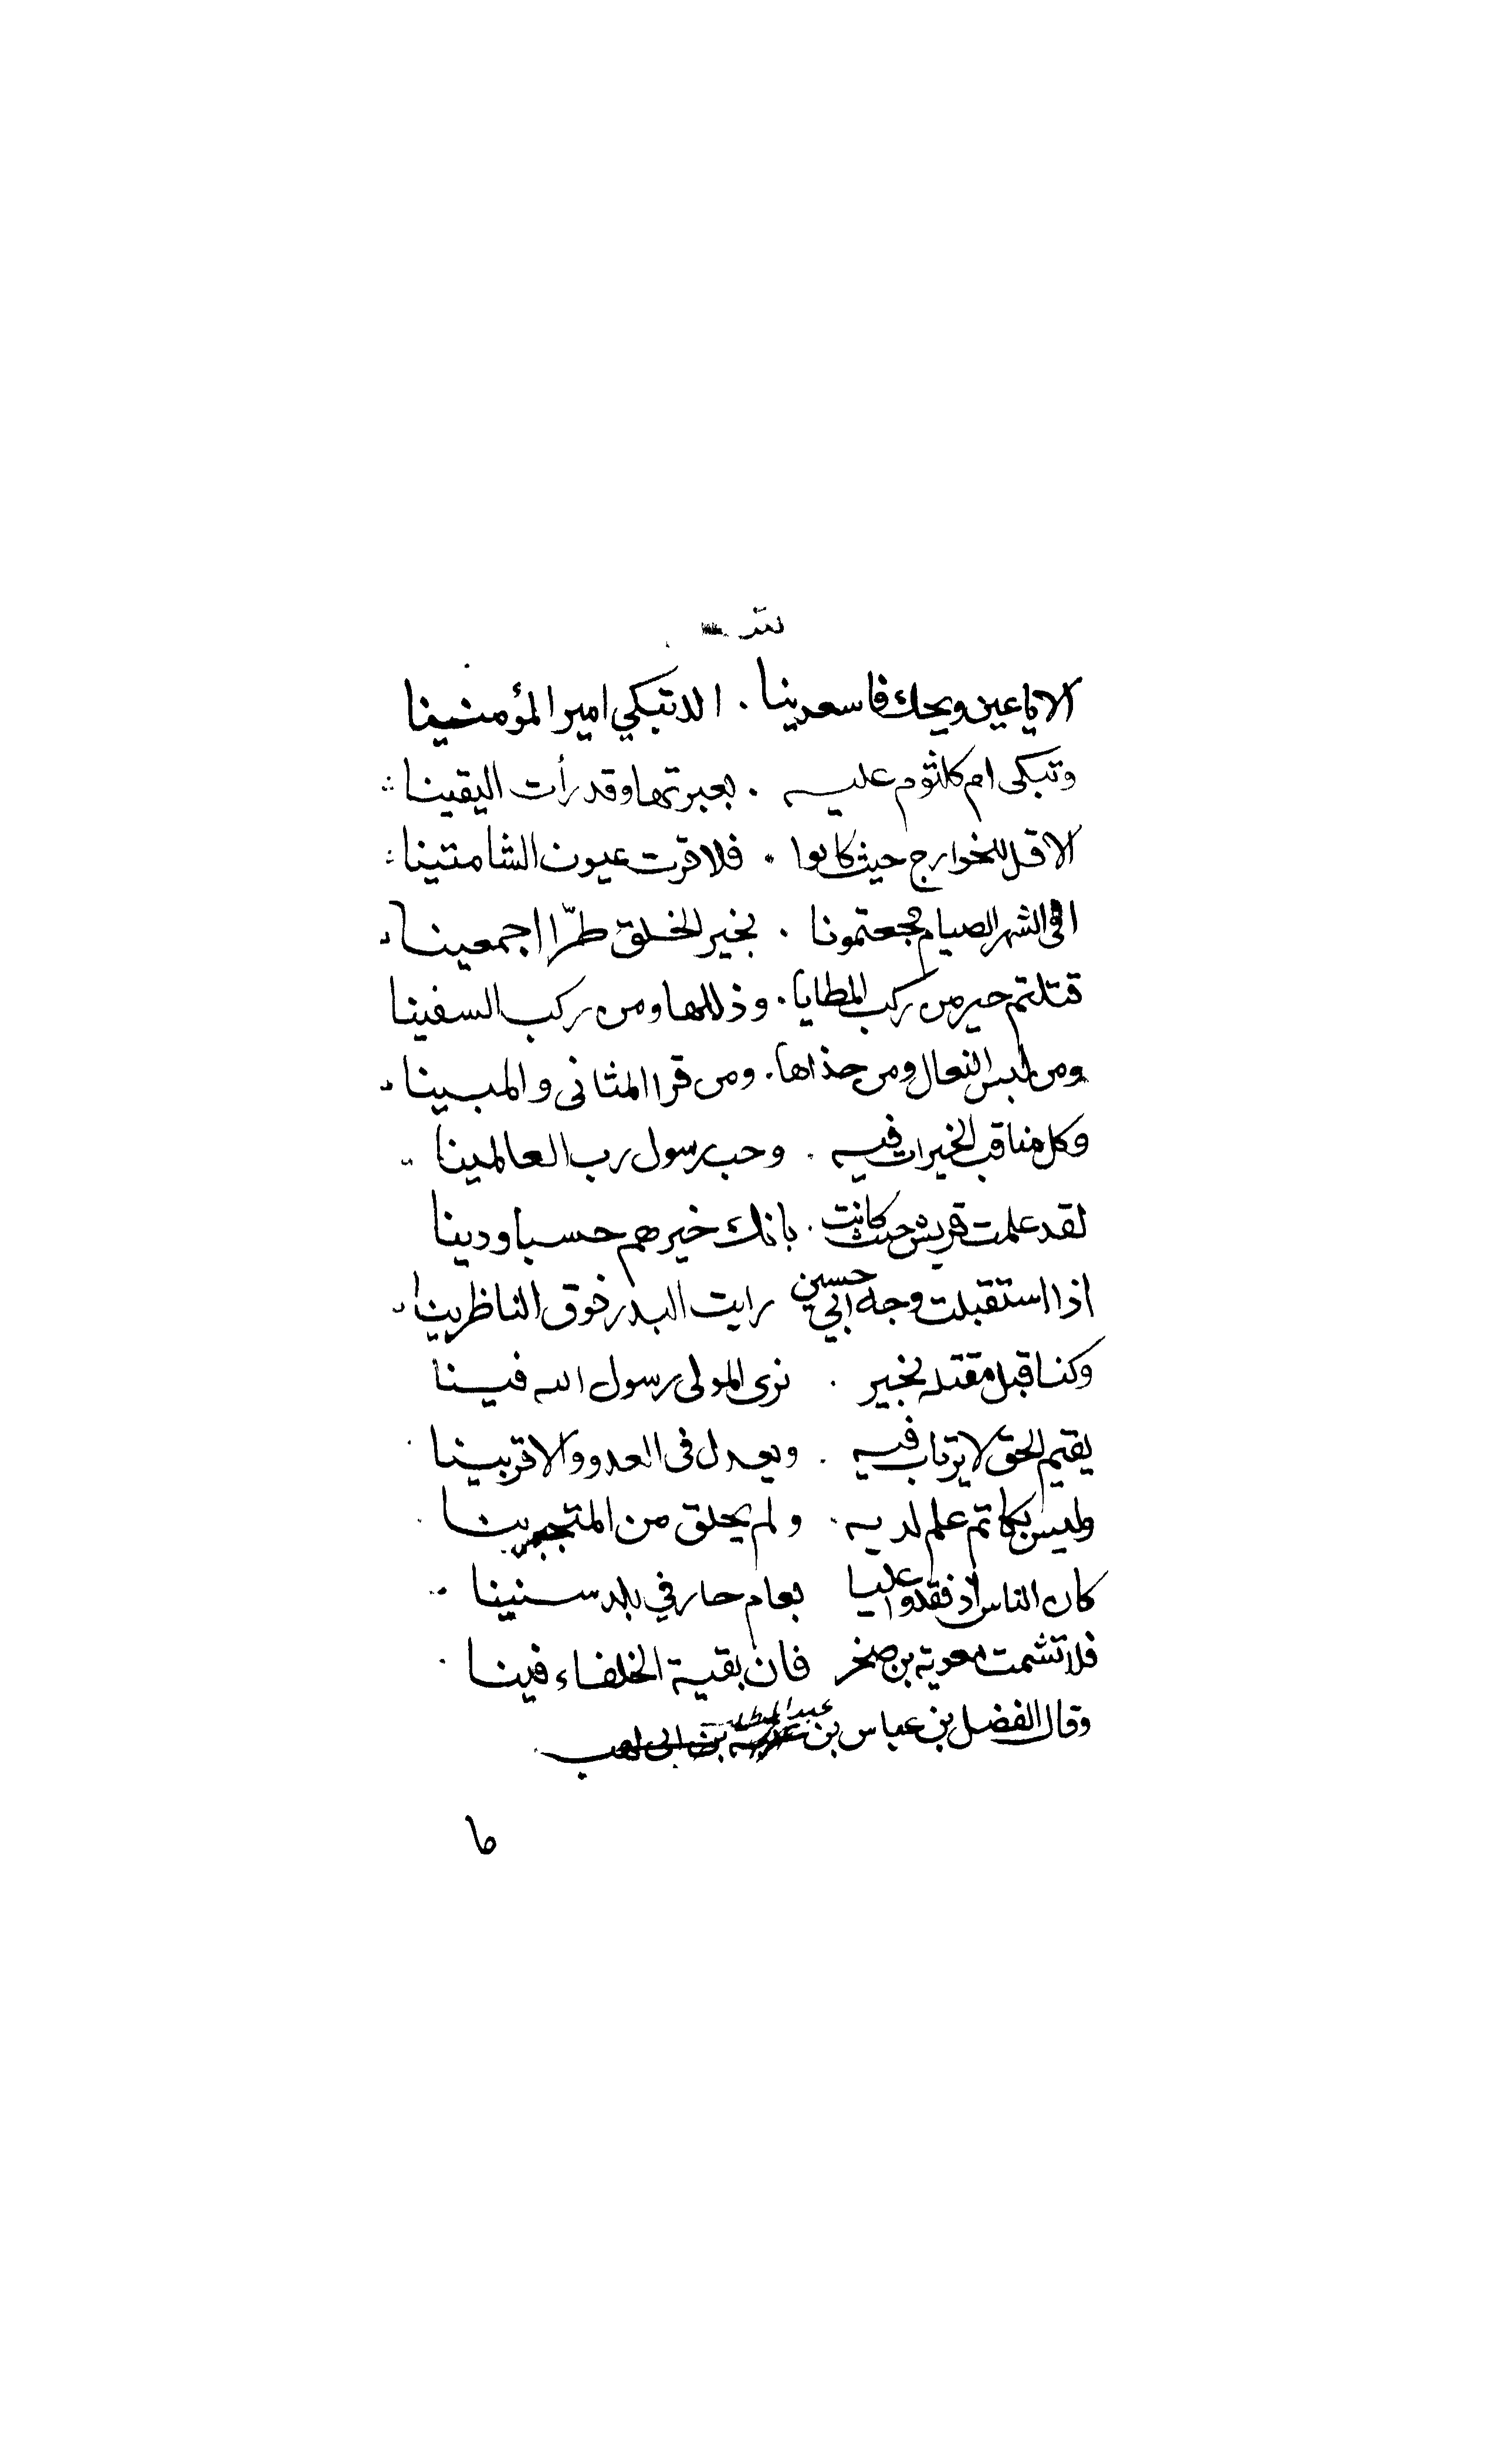 شعر
الا يا عين ويحك فاسعدينا . الا تبكي امير المؤمنينا
وتبكى ام كلثوم عليه . بعبرتها وقد رأت اليقينا
الا قل للخوارج حيث كانوا . فلا قرت عيون الشامتينا
افى الشهر الصيام فجعتمونا . بخير الخلق طرّا اجمعينا
قتلتم خير من ركب المطايا . وذللها ومن ركب السفينا
ومن لبس النعال ومن حذاها . ومن قرا المثانى والمبينا
وكل مناقب الخيرات فيه . وحب رسول رب العالمينا
لقد علمت قريش حيث كانت . بانك خيرهم حسبا ودينا
اذا استقبلت وجه ابي حسين رايت البدر فوق الناظرينا
وكنا قبل مقتله بخير . نرى المولى رسول الله فينا
يقيم الحق لا يرتاب فيه . ويعدل فى العدو والاقربينا
وليس بكاتم علم لديه . ولم يخلق من المتجبرينا
كان الناس اذ فقدوا عليا نعام حار في بلد سنينا
فلا تشمت معوية بن صخر فان بقية الخلفاء فينا
وقال الفضل بن عباس بن عبد المطلب